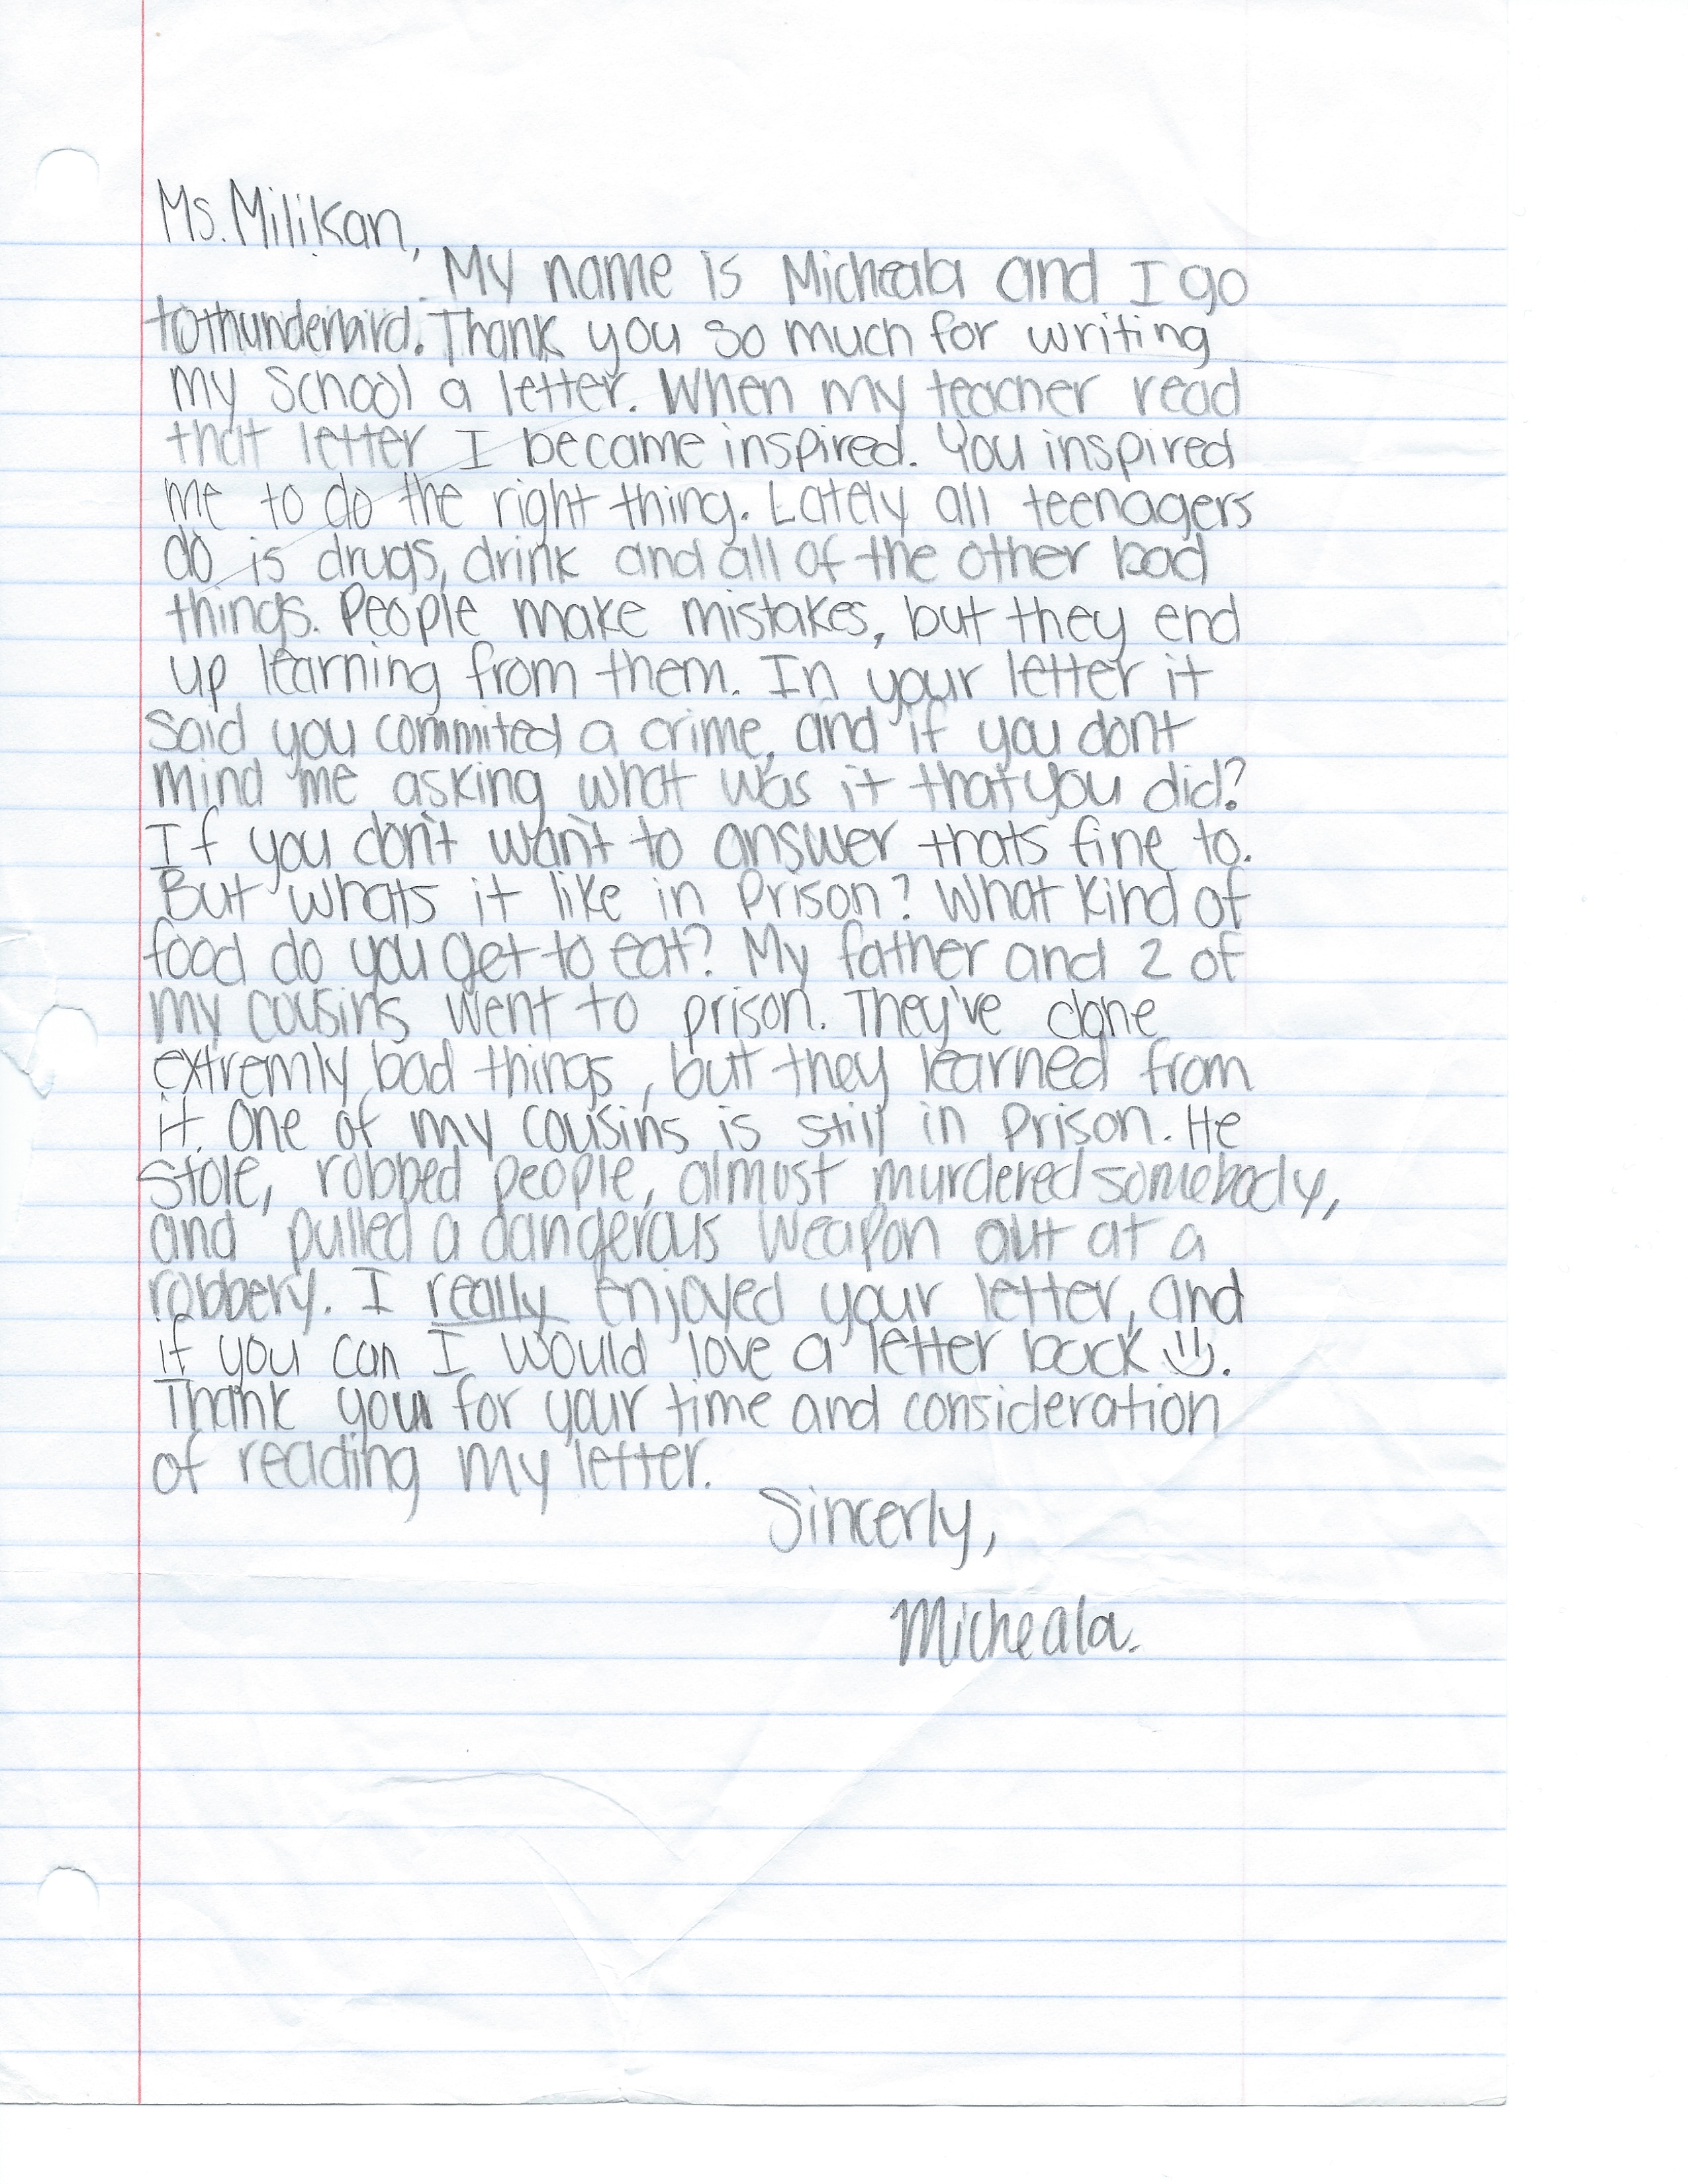 Ms. Milikan,
My name is Micheala and I go
to thunderbird. Thank you so much for writing
my School a letter. When my teacher read
that letter I became inspired. You inspired
me to do the right thing. Lately all teenagers
do is drugs, drink and all of the other bad
things. People make mistakes, but they end
up learning from them. In your letter it
said you commited a crime, and if you dont
mind me asking what was it that you did?
If you don't want to answer thats fine to.
But whats it like in Prison? What kind of
food do you get to eat? My father and 2 of
my cousins went to prison. They've done
extremly bad things, but they learned from
it. One of my cousins is still in prison. He
stole, robbed people, almost murdered somebody,
and pulled a dangerous weapon out at a
robbery. I really enjoyed your letter, and
if you can I would love a letter back.
Thank you for your time and consideration
of reading my letter.
Sincerly,
Micheala.